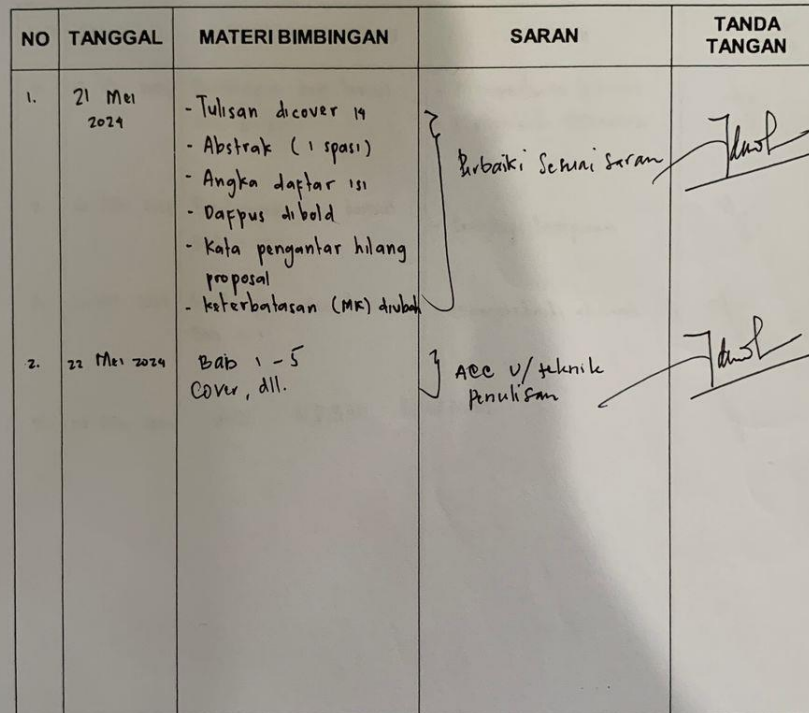 NO TANGGAL MATERI BIMBINGAN SARAN TANDA TANGAN
1. 21 Mei 2024
- Tulisan dicover 14
- Abstrak (1 spasi)
- Angka daftar isi
- Dafpus dibold
- Kata pengantar hilang
proposal
- keterbatasan (MK) diubah
Perbaiki Sesuai Saran
2. 22 Mei 2024
Bab 1 - 5
Cover, dll.
ACC U/ teknik
Penulisan